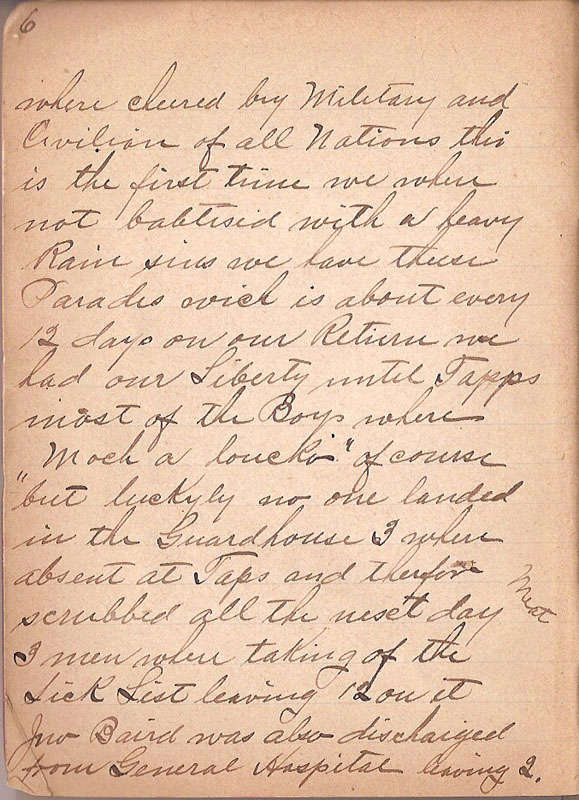 6
where cheered by Military and
Civilian of all Nations this
is the first time we where
not babtisid with a heavy
Rain sins we have these
Parades wich is about every
12 days on our Return we
had our Liberty until Tapps
most of the Boys where
"Moch a" of course
but luckyly no one landed
in the Guardhouse 3 where
absent at Taps and therfore
scrubbed all the nesct day
Meat
3 men where taking of the
Sick List leaving 12 on it
Jno Baird was also discharged
from General Hospital leaving 2.